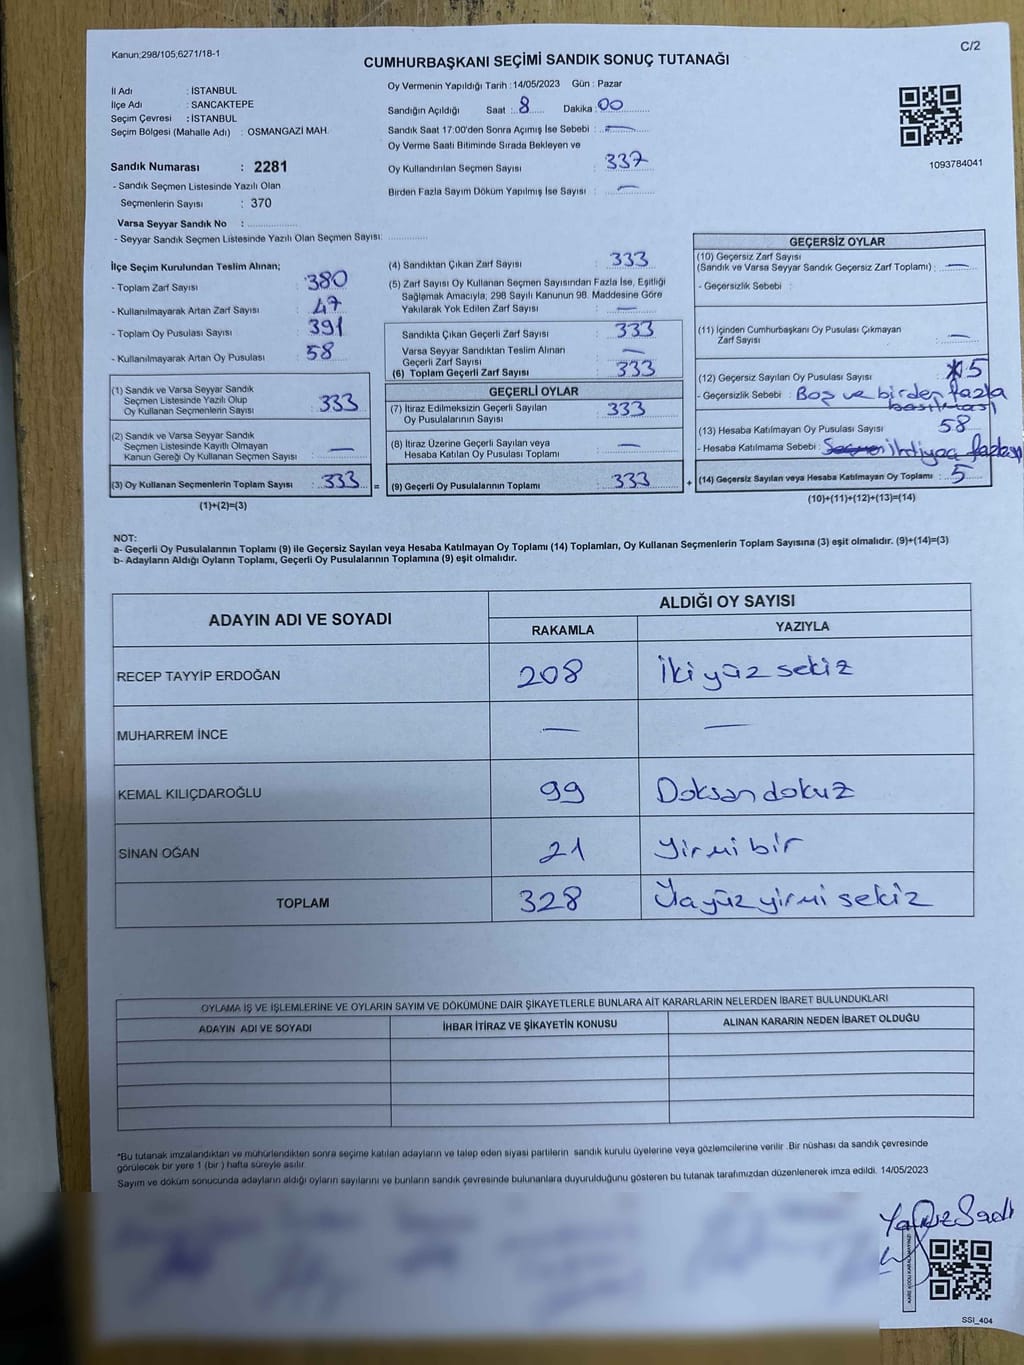 Kanun;298/105,6271/18-1
C/2
CUMHURBAŞKANI SEÇİMİ SANDIK SONUÇ TUTANAĞI
İl Adı : İSTANBUL
İlçe Adı : SANCAKTEPE
Seçim Çevresi : İSTANBUL
Seçim Bölgesi (Mahalle Adı) : OSMANGAZİ MAH.
Sandık Numarası : 2281
- Sandık Seçmen Listesinde Yazılı Olan
Seçmenlerin Sayısı : 370
Varsa Seyyar Sandık No :
- Seyyar Sandık Seçmen Listesinde Yazılı Olan Seçmen Sayısı:
Oy Vermenin Yapıldığı Tarih : 14/05/2023 Gün : Pazar
Sandığın Açıldığı Saat : 8 Dakika : 00
Sandık Saat 17:00'den Sonra Açımış İse Sebebi : —
Oy Verme Saati Bitiminde Sırada Bekleyen ve
Oy Kullandırılan Seçmen Sayısı : 337
Birden Fazla Sayım Döküm Yapılmış İse Sayısı : —
1093784041
İlçe Seçim Kurulundan Teslim Alınan;
- Toplam Zarf Sayısı : 380
- Kullanılmayarak Artan Zarf Sayısı : 47
- Toplam Oy Pusulası Sayısı : 391
- Kullanılmayarak Artan Oy Pusulası : 58
(1) Sandık ve Varsa Seyyar Sandık
Seçmen Listesinde Yazılı Olup
Oy Kullanan Seçmenlerin Sayısı : 333
(2) Sandık ve Varsa Seyyar Sandık
Seçmen Listesinde Kayıtlı Olmayan
Kanun Gereği Oy Kullanan Seçmen Sayısı : —
(3) Oy Kullanan Seçmenlerin Toplam Sayısı : 333 =
(1)+(2)=(3)
(4) Sandıktan Çıkan Zarf Sayısı : 333
(5) Zarf Sayısı Oy Kullanan Seçmen Sayısından Fazla İse, Eşitliği
Sağlamak Amacıyla; 298 Sayılı Kanunun 98. Maddesine Göre
Yakılarak Yok Edilen Zarf Sayısı : —
Sandıkta Çıkan Geçerli Zarf Sayısı : 333
Varsa Seyyar Sandıktan Teslim Alınan
Geçerli Zarf Sayısı : —
(6) Toplam Geçerli Zarf Sayısı : 333
GEÇERLİ OYLAR
(7) İtiraz Edilmeksizin Geçerli Sayılan
Oy Pusulasının Sayısı : 333
(8) İtiraz Üzerine Geçerli Sayılan veya
Hesaba Katılan Oy Pusulası Toplamı : —
(9) Geçerli Oy Pusulalarının Toplamı : 333 +
GEÇERSİZ OYLAR
(10) Geçersiz Zarf Sayısı
(Sandık ve Varsa Seyyar Sandık Geçersiz Zarf Toplamı) : —
- Geçersizlik Sebebi :
(11) İçinden Cumhurbaşkanı Oy Pusulası Çıkmayan
Zarf Sayısı : —
(12) Geçersiz Sayılan Oy Pusulası Sayısı : 5
- Geçersizlik Sebebi : Boş ve birden fazla
basılması
(13) Hesaba Katılmayan Oy Pusulası Sayısı 58
- Hesaba Katılmama Sebebi : ihtiyaç fazlası
(14) Geçersiz Sayılan veya Hesaba Katılmayan Oy Toplamı : 5
(10)+(11)+(12)+(13)=(14)
NOT:
a- Geçerli Oy Pusulalarının Toplamı (9) ile Geçersiz Sayılan veya Hesaba Katılmayan Oy Toplamı (14) Toplamları, Oy Kullanan Seçmenlerin Toplam Sayısına (3) eşit olmalıdır. (9)+(14)=(3)
b- Adayların Aldığı Oyların Toplamı, Geçerli Oy Pusulalarının Toplamına (9) eşit olmalıdır.
ADAYIN ADI VE SOYADI
ALDIĞI OY SAYISI
RAKAMLA YAZIYLA
RECEP TAYYİP ERDOĞAN 208 İki yüz sekiz
MUHARREM İNCE — —
KEMAL KILIÇDAROĞLU 99 Doksan dokuz
SİNAN OĞAN 21 Yirmi bir
TOPLAM 328 Üç yüz yirmi sekiz
OYLAMA İŞ VE İŞLEMLERİNE VE OYLARIN SAYIM VE DÖKÜMÜNE DAİR ŞİKAYETLERLE BUNLARA AİT KARARLARIN NELERDEN İBARET BULUNDUKLARI
ADAYIN ADI VE SOYADI İHBAR İTİRAZ VE ŞİKAYETİN KONUSU ALINAN KARARIN NEDEN İBARET OLDUĞU
*Bu tutanak imzalandıktan ve mühürlendikten sonra seçime katılan adayların ve talep eden siyasi partilerin sandık kurulu üyelerine veya gözlemcilerine verilir .Bir nüshası da sandık çevresinde
görülecek bir yere 1 (bir ) hafta süreyle asılır.
Sayım ve döküm sonucunda adayların aldığı oyların sayılarını ve bunların sandık çevresinde bulunanlara duyurulduğunu gösteren bu tutanak tarafımızdan düzenlenerek imza edildi. 14/05/2023
SSI_404